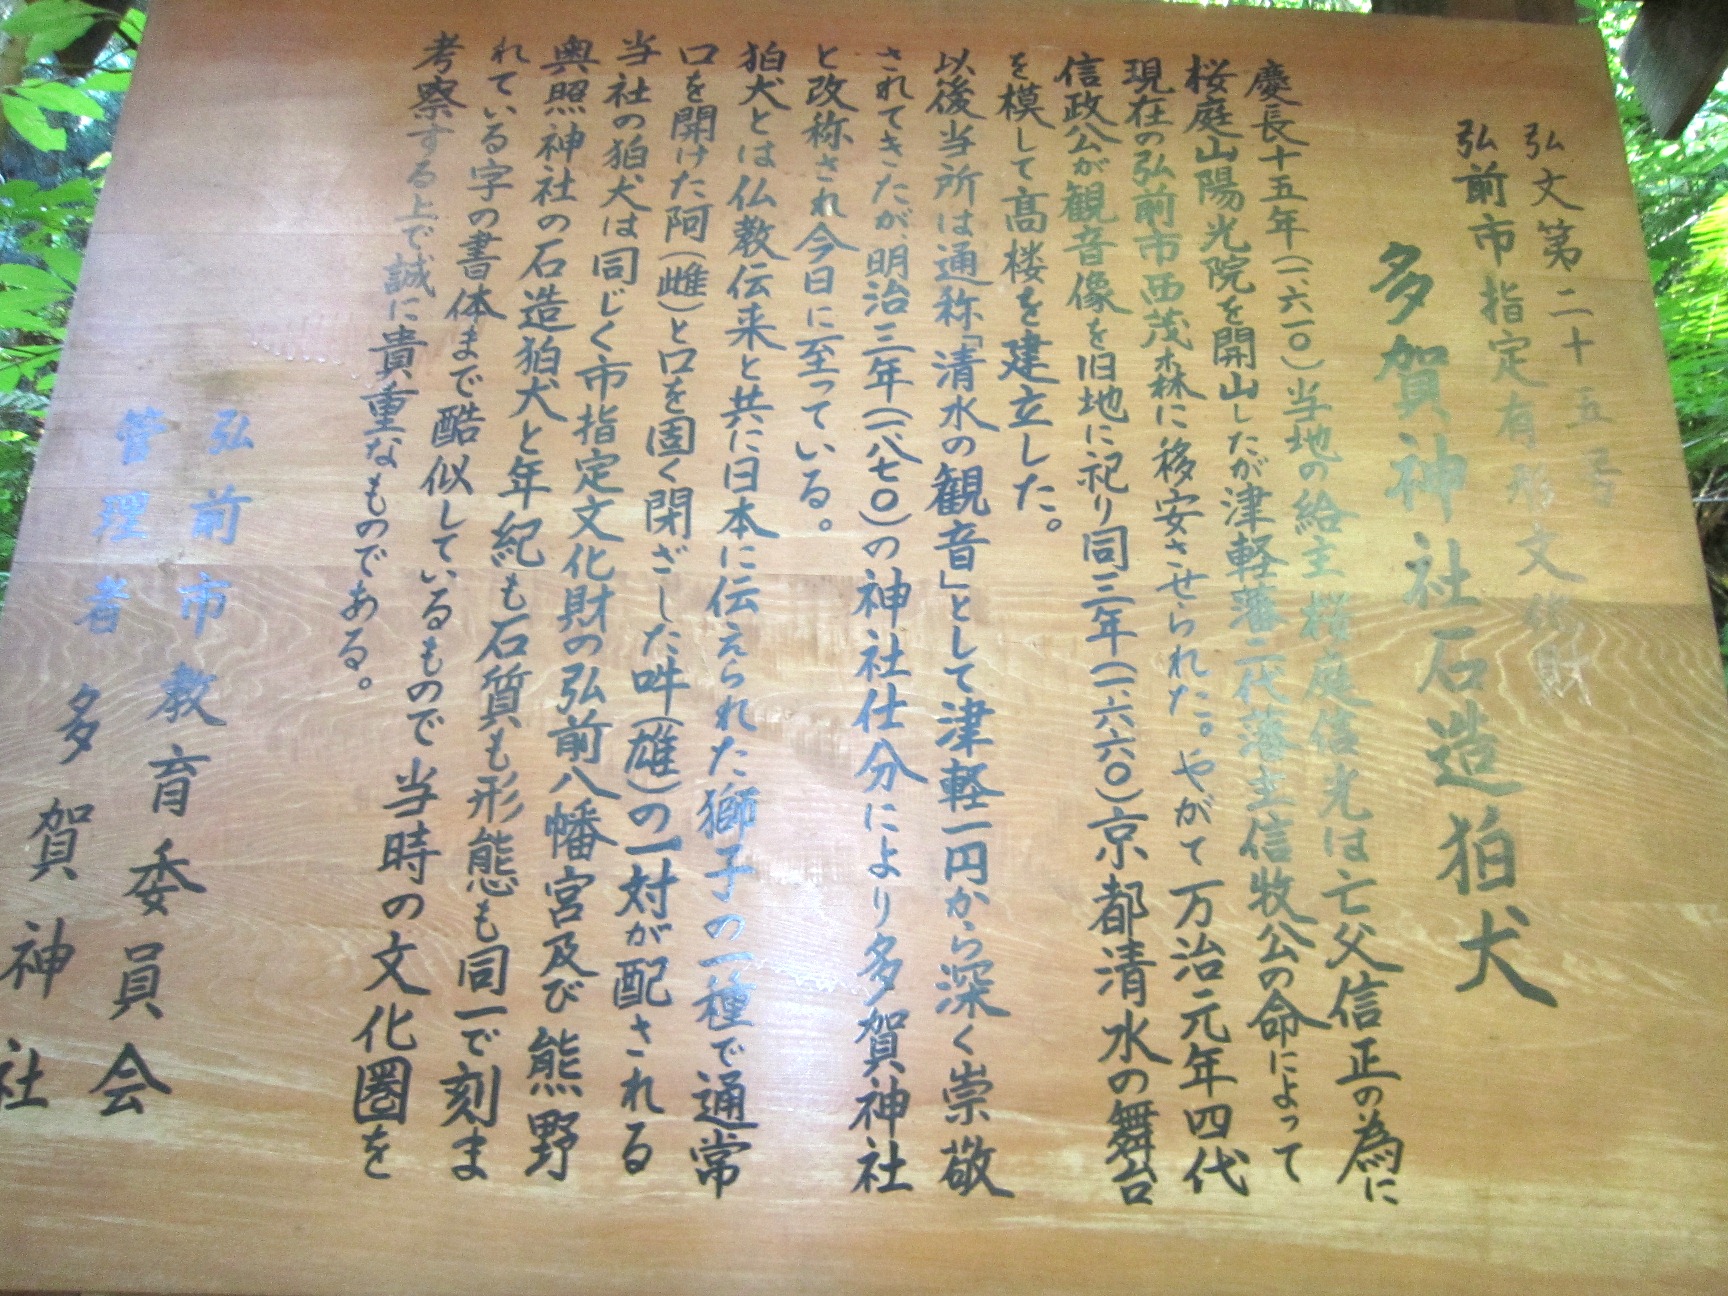 弘文第二十五号
弘前市指定有形文化財
多賀神社石造狛犬
慶長十五年(一六一〇)当地の給主桜庭信光は亡父信正の為に
桜庭山陽光院を開山したが津軽藩二代藩主信牧公の命によって
現在の弘前市西茂森に移安させられた。やがて万治元年四代
信政公が観音像を旧地に祀り同三年(一六六〇)京都清水の舞台
を模して高楼を建立した。
以後当所は通称「清水の観音」として津軽一円から深く崇敬
されてきたが、明治三年(一八七〇)の神社仕分により多賀神社
と改称され今日に至っている。
狛犬とは仏教伝来と共に日本に伝えられた獅子の一種で通常
口を開けた阿(雌)と口を固く閉ざした吽(雄)の一対が配される
当社の狛犬は同じく市指定文化財の弘前八幡宮及び熊野
奥照神社の石造狛犬と年紀も石質も形態も同一で刻ま
れている字の書体まで酷似しているもので当時の文化圏を
考察する上で誠に貴重なものである。
弘前市教育委員会
管理者 多賀神社